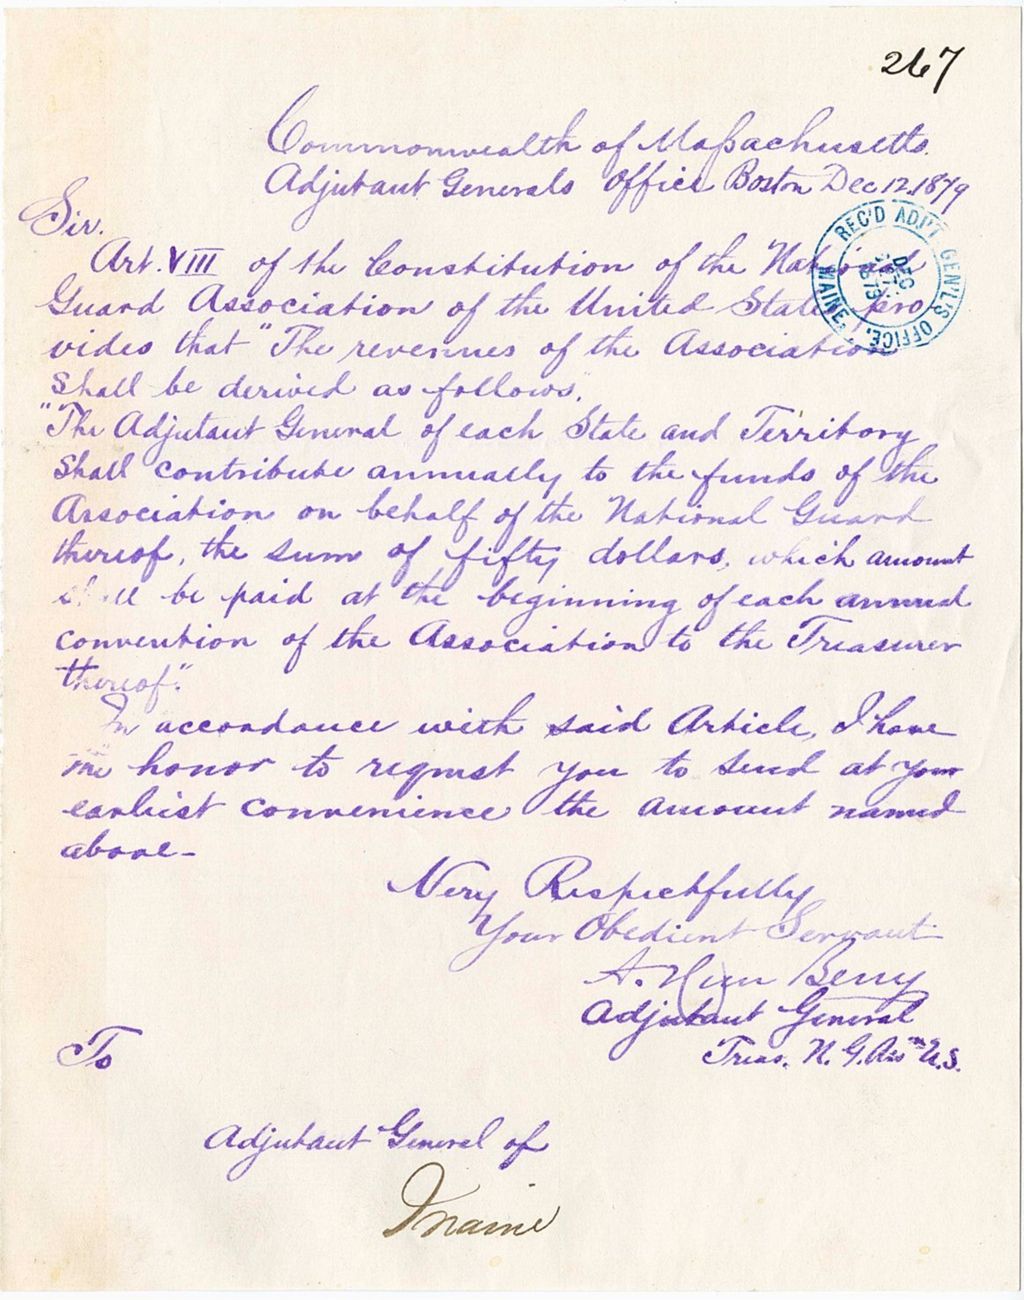 267
Commonwealth of Massachusetts.
Adjutant Generals Office Boston Dec 12. 1879
Sir.
REC'D ADJ'T GEN'L'S OFFICE.
MAINE
DEC
1879
Art. VIII of the Constitution of the National
Guard Association of the United States pro
vides that "The revenues of the Association
shall be derived as follows."
"The Adjutant General of each State and Territory
shall contribute annually to the funds of the
Association on behalf of the National Guard
thereof, the sum of fifty dollars, which amount
shall be paid at the beginning of each annual
convention of the Association to the Treasurer
thereof."
In accordance with said Article, I have
the honor to request you to send at your
earliest convenience the amount named
above-
Very Respectfully
Your Obedient Servant
A. Hun Berry
Adjutant General
Treas. N. G. Assn U.S.
To
Adjutant General of
Maine